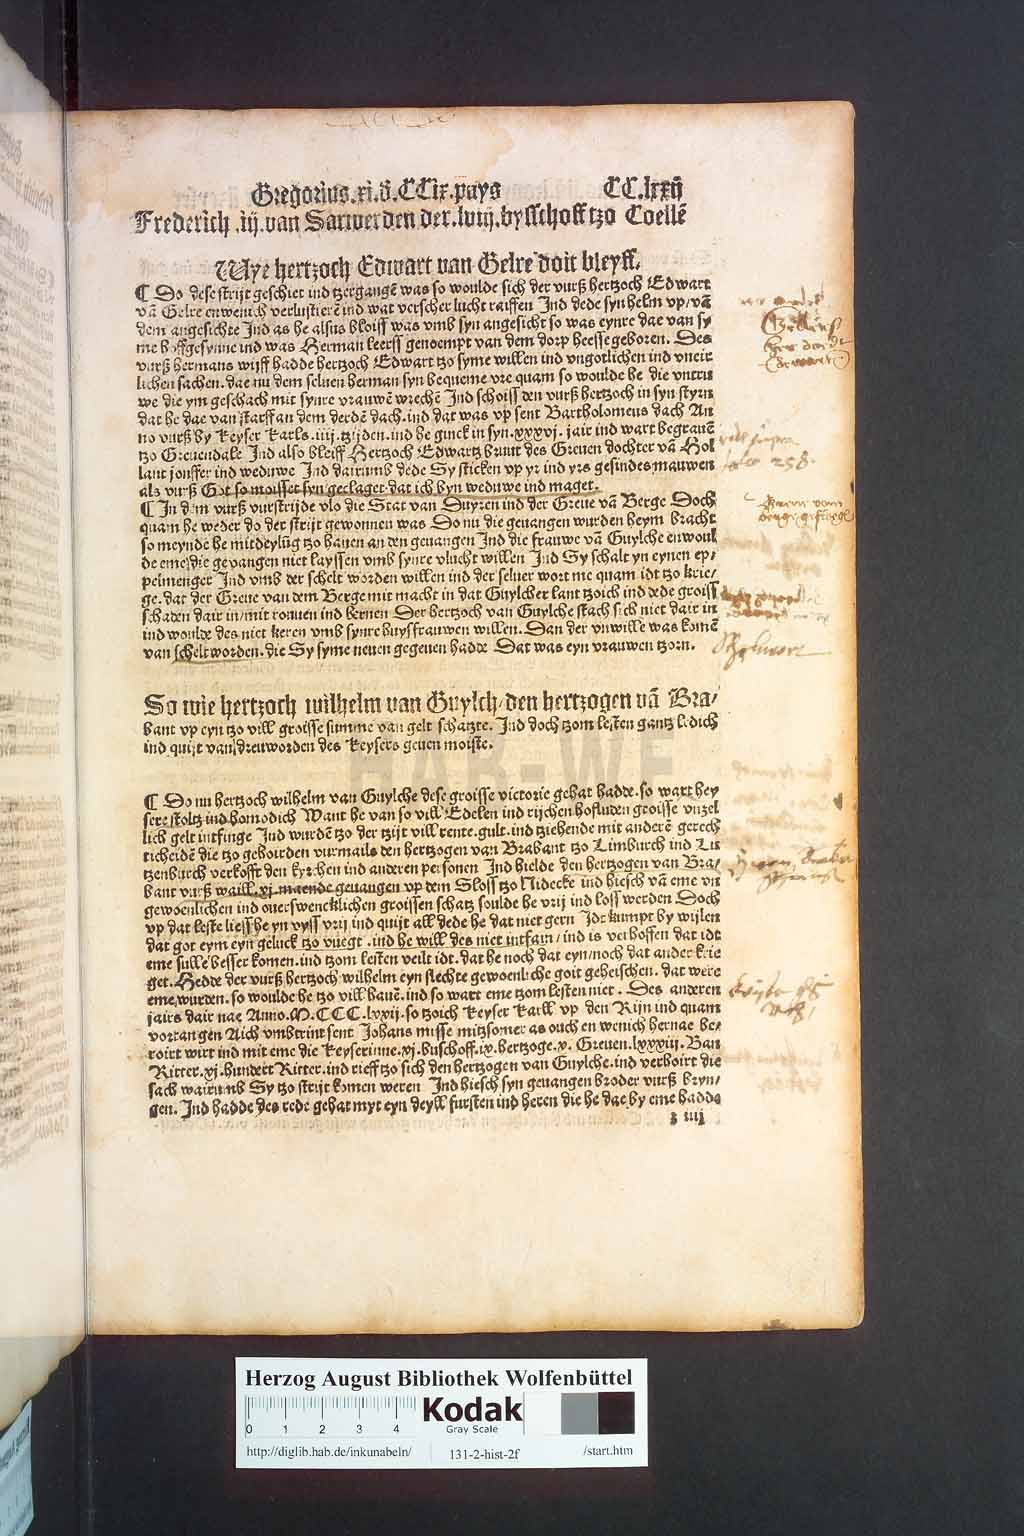 Gregorius.xi.d̄.CCix.pays CC.lxxij
Frederich .iij.van Sarwerden der.lviij.bysschoff tzo Coellē
Wye hertzoch Edwart van Gelre doit bleyff.
¶ Do dese strijt geschiet ind tzergangē was so woulde sich der vurß hertzoch Edwart
vā Gelre enwenich verlustierē ind wat verscher lucht raiffen Ind dede syn helm vp/vā
dem angesichte Ind as he alsus bloiss was vmb syn angesicht so was eynre dae van sy
me hoffgesynne ind was Herman leerss genoempt van dem dorp heesse geboren. Des
vurß hermans wijff hadde hertzoch Edwart tzo syme willen ind vngotlichen ind vneir
lichen sachen. dae nu dem seluen herman syn bequeme vre quam so woulde he die vntru
we die ym geschach mit synre vrauwē wrechē Ind schoiss den vurß hertzoch in syn styrn
dat he dae van starff an dem derdē dach.ind dat was vp sent Bartholomeus dach An
no vurß by keyser karls.iiij.tzijden.ind he ginck in syn.xxxvj. jair ind wart begrauē
tzo Greuendale Ind also bleiff Hertzoch Edwartz bruut des Greuen dochter vā Hol
lant jonffer ind weduwe Ind dairumb dede Sy sticken vp yr ind yrs gesindes mauwen
als vurß Got so moisset syn geclaget dat ich byn weduwe ind maget.
¶ In dem vurß vurstrijde vlo die Stat van Duyren ind der Greue vā Berge Doch
quam he weder do der strijt gewonnen was Do nu die geuangen wurden heym bracht
so meynde he mitdeylūg tzo hauen an den geuangen Ind die frauwe vā Guylche enwoul
de eme die gevangen niet layssen vmb synre vlucht willen Ind Sy schalt yn eynen ep/
pelmenger Ind vmb der schelt worden willen ind der seluer wort me quam idt tzo krie/
ge. dat der Greue van dem Berge mit macht in dat Guylcher lant tzoich ind dede groiss
schaden dair in/mit rouuen ind bernen Der hertzoch van Guylche stach sich niet dair in
ind woulde des niet keren vmb synre huysfrauwen willen. Dan der vnwille was komē
van scheltworden. die Sy syme neuen gegeuen hadde Dat was eyn vrauwen tzorn.
So wie hertzoch wilhelm van Guylch/den hertzogen vā Bra/
bant vp eyn tzo vill groisse summe van gelt schatzte. Ind doch tzom lesten gantz ledich
ind quijt van dreuworden des keysers geuen moiste.
¶ Do nu hertzoch wilhelm van Guylche dese groisse victorie gehat hadde. so wart hey
sere stoltz ind homodich Want he van so vill Edelen ind rijchen hoflüden groisse vnzel
lich gelt intfinge Ind wurdē tzo der tzijt vill rente.gult.ind tziehende mit anderē gerech
ticheidē die tzo gehoirden vurmails den hertzogen van Brabant tzo Limburch ind Lu
tzenburch verkofft den kyrchen ind anderen personen Ind hielde den hertzogen van Bra/
bant vurß waill.xj maende geuangen vp dem Sloss tzo Nidecke ind hiesch vā eme vn
gewoenlichen ind ouerswencklichen groissen schatz soulde he vrij ind loss werden Doch
vp dat leste liesshe yn vyss vrij ind quijt all dede he dat niet gern Idt kumpt by wijlen
dat got eym eyn geluck tzo vuegt .ind he will des niet intfain/ind is verhoffen dat idt
eme sulle besser komen.ind tzom lesten veilt idt. dat he noch dat eyn/noch dat ander krie
get. Hedde der vurß hertzoch wilhelm eyn slechte gewoenliche goit geheischen. dat were
eme wurden. so woulde he tzo vill hauē.ind so wart eme tzom lesten niet . Des anderen
jairs dair nae Anno.M.CCC.lxxij.so tzoich keyser karll vp den Rijn ind quam
vorrangen Aich vmbtrint sent Johans misse mitzsomer as ouch en wenich hernae be/
roirt wirt ind mit eme die keyserinne.xj.buschoff.ix.hertzoge.x. Greuen.lxxxiij. Ban
Ritter.xj.hundert Ritter.ind rieff tzo sich den hertzogen van Guylche.ind verhoirt die
sach wairumb Sy tzo strijt komen weren Ind hiesch syn geuangen broder vurß bryn/
gen. Ind hadde des rede gehat myt eyn deyll fursten ind heren die he dae by eme hadde
z iiij
Herzog August Bibliothek Wolfenbüttel
0 1 2 3 4
Kodak
Gray Scale
http://diglib.hab.de/inkunabeln/ 131-2-hist-2f /start.htm
HAB-WF